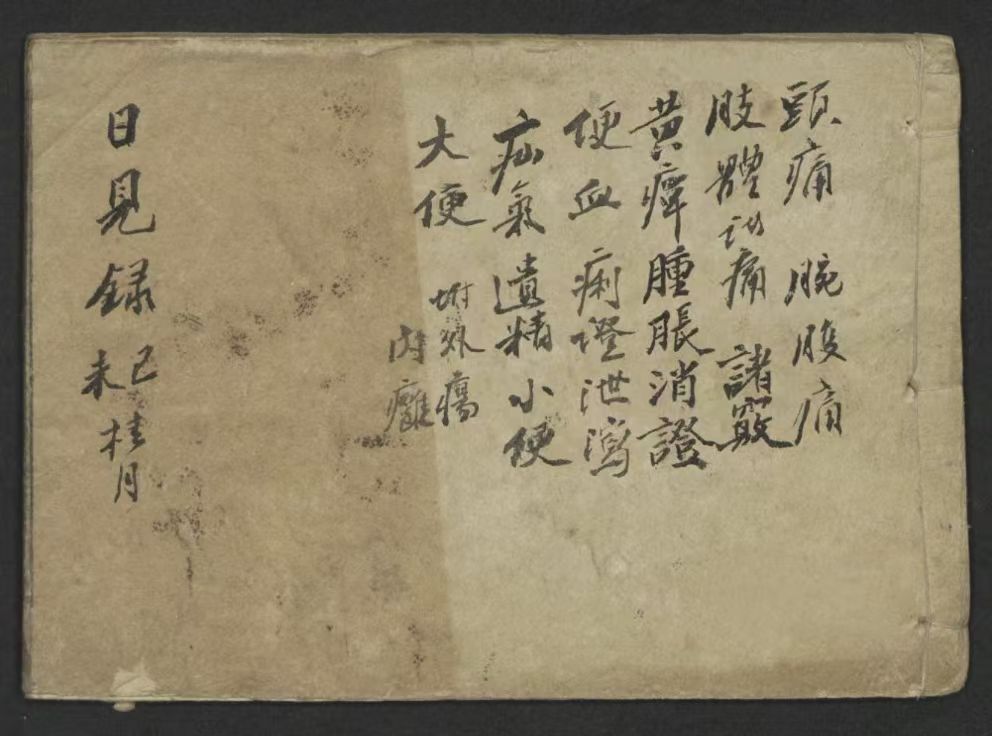 頭痛　脘腹痛
肢體諸痛　諸竅
黃癉腫脹消證
便血痢證泄瀉
疝氣遺精小便
大便
坿外瘍
內癰
日見錄
己未桂月